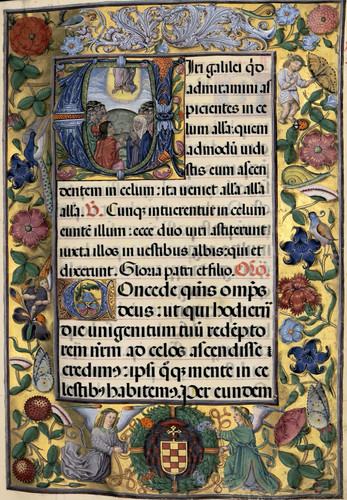 Viri galilei q̄d
admiramini as
picientes in ce
lum alla: quem
admodū uidi
stis eum ascen
dentem in celum: ita veniet alla alla
alla. ꝟ. Cunqꝫ intuerentur in celum
eunte illum: ecce duo uiri astiterunt
iuxta illos in uestibus albis: qui et
dixerunt. Gloria patri et filio. Orō
Concede qūis om̄ps
deus: ut qui hodierū
die unigenitum tuū redēpto
rem nr̄m ad celos ascendisse
credimꝰ: ipsi qꝫ mente in ce
lestibꝰ habitemꝰ. Per eundem